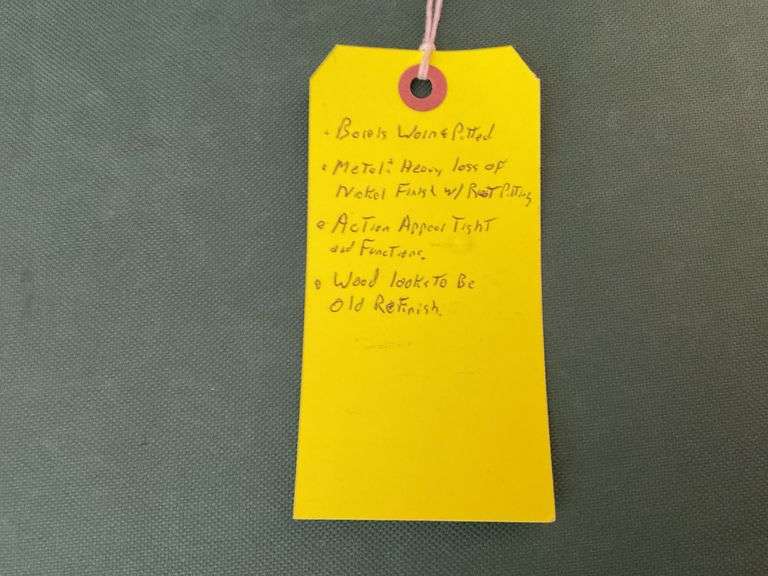 • Bores Worn & Pitted
• Metal: Heavy loss of
Nickel Finish w/ Rust Pitting
• Action Appear Tight
and Functions.
• Wood looks To Be
Old Refinish.